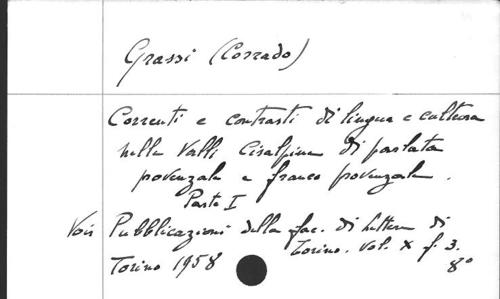 Grassi (Corrado)
Correnti e contrasti di lingua e cultura
nelle Valli Cisalpine di parlata
provenzale e franco provenzale.
Parte I
Voir Pubblicazioni della fac. di lettere di
Torino. Vol. X f. 3.
Torino 1958 8°